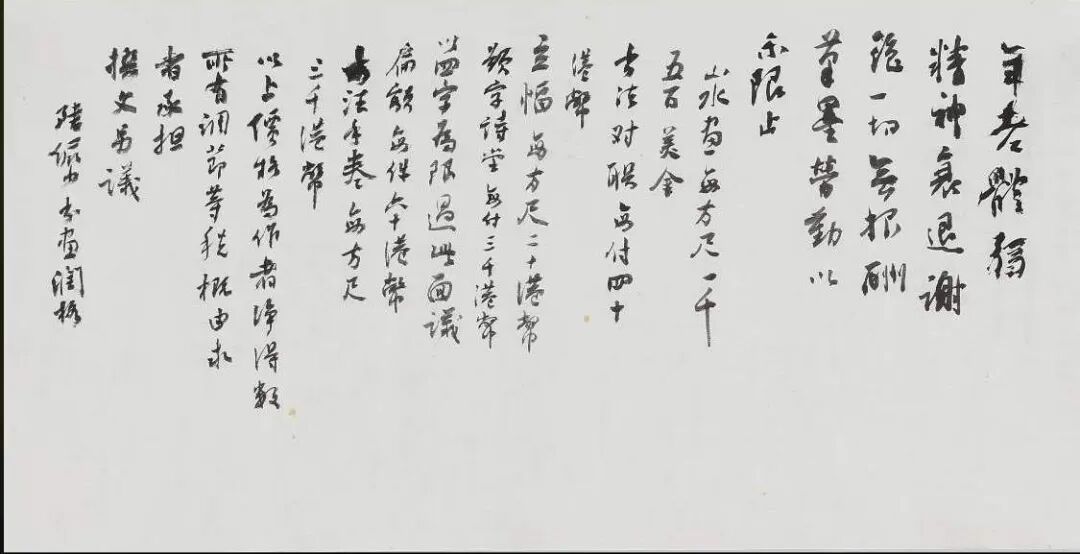 年老體弱
精神衰退謝
絕一切無報酬
筆墨營勤以
示限止
山水画每方尺一千
五百美金
书法对联每付四十
港幣
立幅每方尺二十港幣
题字詩堂每付三千港幣
以四字為限過此面議
扁额每件六十港幣
书法手卷每方尺
三千港幣
以上價格為作者净得數
所有调節等稅概由求
者承担
撰文另議
陸儼少书画润格